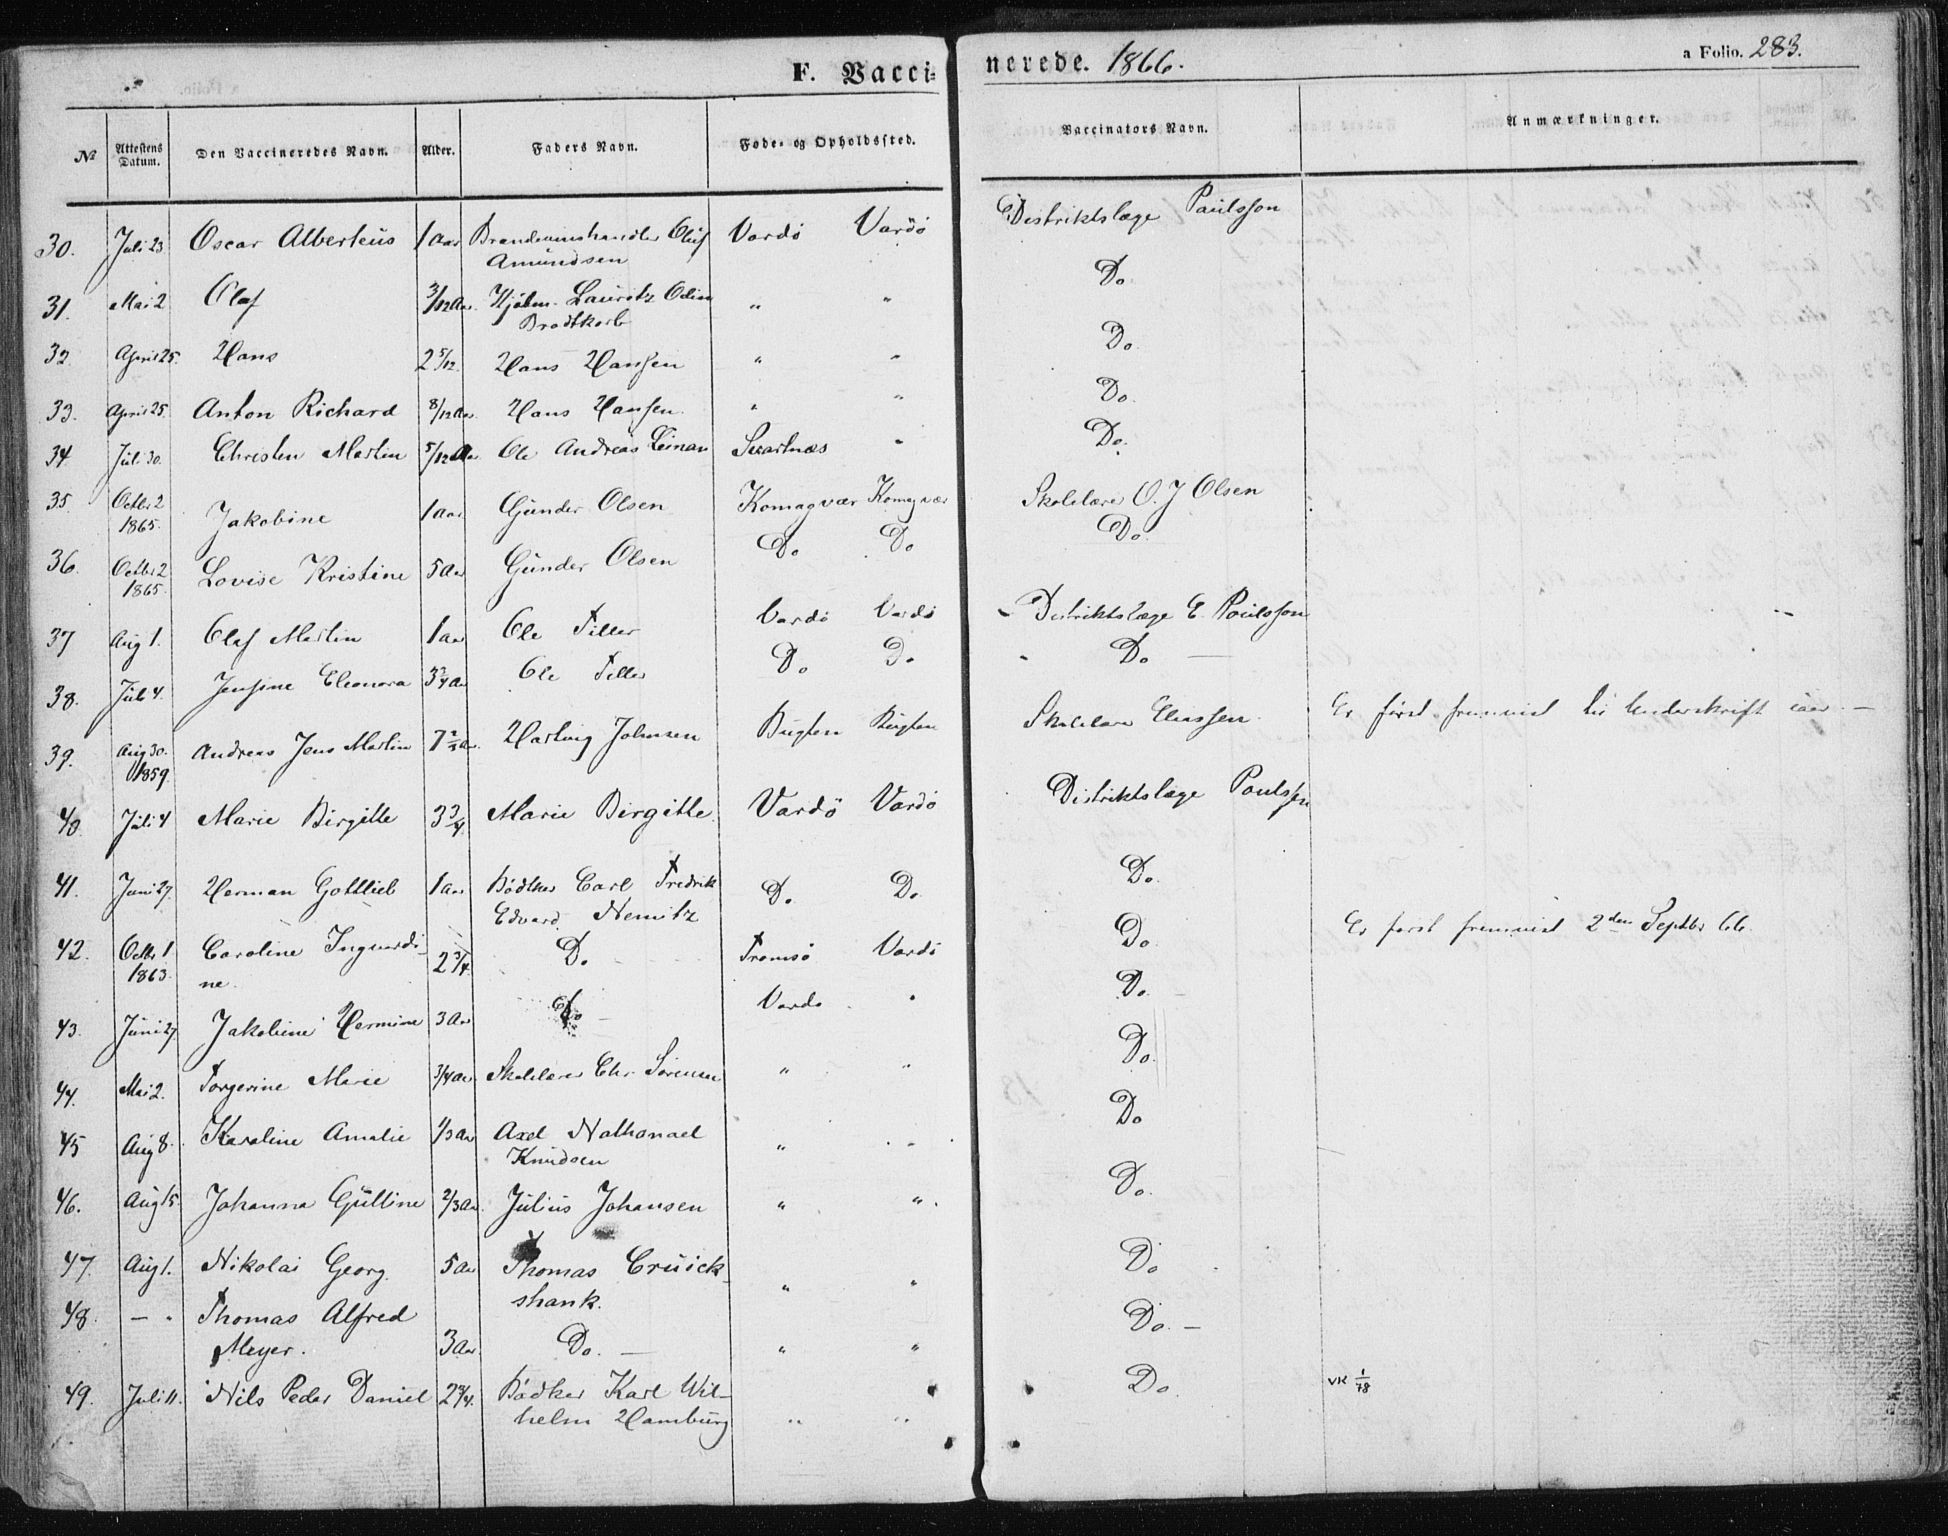 F. Vaccinerede. 1866.
a Folio. 283.
№ Attestens Datum. Den Vaccineredes Navn. Alder. Faders Navn. Føde- og Opholdssted. Vaccinators Navn. Anmærkninger.
30. Juli 23 Oscar Alberteus 1 Aar Brændevinshandler Oluf Vardö Vardö Distriktslæge Paulsson
Amundsen
31. Mai 2 Olaf 3/12 Aar. Kjøbm. Lauritz Odin " " Do.
Brodtkorb
32. April 25. Hans 2 5/12. Hans Hansen " " Do.
33. April 25. Anton Richard 8/12 Aar. Hans Hansen. " " Do.
34. Juli 30. Christen Martin 5/12 Aar Ole Andreas Leinan Svartnæs " Do.
35. Octbr 2 Jakobine 1 aar Gunder Olsen Komagvær Komagvær Skolelærer O. J Olsen
1865.
36. Octbr 2 Lovise Kristine 5 Aar Gunder Olsen Do Do Do.
1865.
37 Aug 1. Olaf Martin 1 aar Ole Tiller Vardö Vardö Distriktslæge E. Poulsson
38. Juli 4. Jensine Eleonora 3 3/4 Aar Ole Tiller Do Do Do —
39. Aug 30. Andreas Jens Martin 7 Hartvig Johnsen Bugten Bugten Skolelærer Eliassen. Er først fremvist til Underskrift iaar —
1859.
40. Juli 4 Marie Birgitte 3 3/4. Marie Birgitte. Vardö Vardö Distriktslæge Poulsson
41. Juni 27. Herman Gottlieb 1 Aar Bödker Carl Fredrik Do. Do. Do.
Edvard Nemitz
42. Octbr 1 Caroline Ingvardi- 2 3/4. Do Tromsö Vardö Do. Er först fremvist 2den Septbr 66.
1863. ne.
43. Juni 27 Jakobine Hermine 3 Aar Do — Vardö " Do. —
44. Mai 2. Torgerine Marie 3/4 aar. Skolelærer Chr. Sörensen " " Do.
45 Aug 8. Karoline Amalie 1/3 Aar Axel Nathanael " " Do
Knudsen
46. Aug 15 Johanna Gultine 2/3 Aar Julius Johansen " ". Do.
47. Aug 1. Nikolai Georg. 5 Aar Thomas Cruick- " " Do
shank.
48. — " Thomas Alfred Do. —
Meyer. 3 Aar. Do. — " "
49. Juli 11. Nils Peder Daniel 2 3/4. Bödker Karl Wil- Do. VK 1/78
helm Hamburg " "